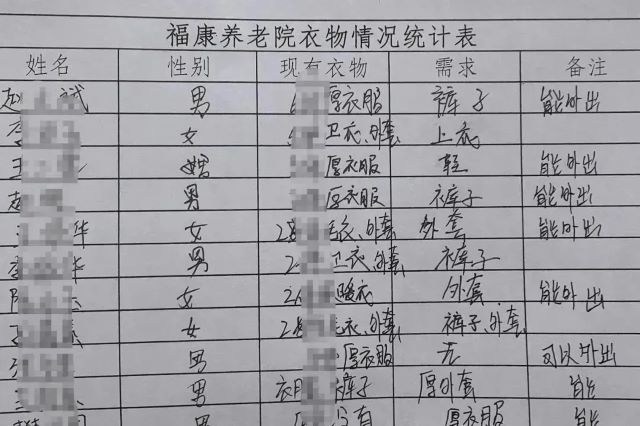 福康养老院衣物情况统计表
姓名 性别 现有衣物 需求 备注
赵 斌 男 厚衣服 裤子 能外出
李 女 卫衣、外套 上衣
王 厚衣服 鞋 能外出
赵 男 厚衣服 裤子 能外出
王 华 女 28 毛衣、外套 外套 能外出
李 华 男 2 卫衣、外套 裤子
陈 女 26 暖衣 外套 能外出
女 28 毛衣、外套 裤子、外套
男 厚衣服 无 可以外出
男 衣服 裤子 厚外套 能
男 没有 厚衣服 能